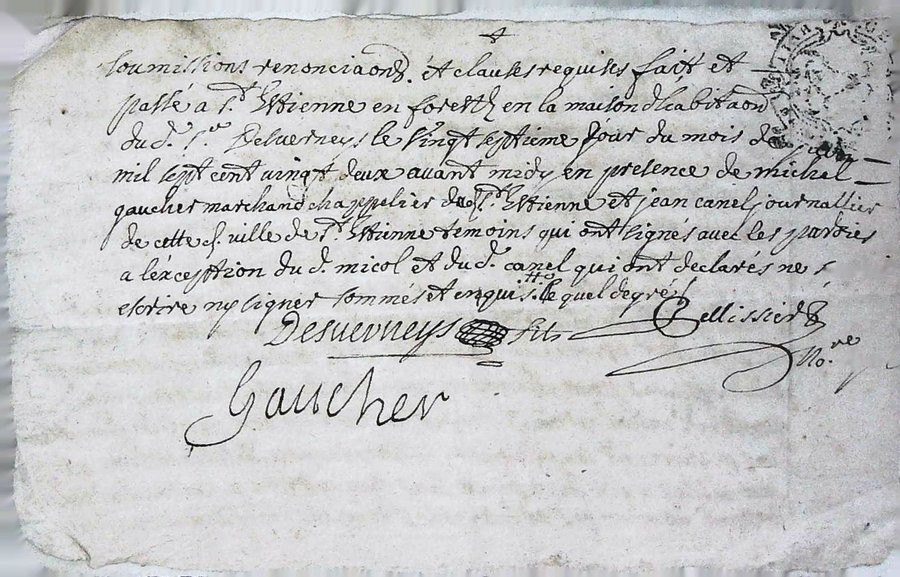 soumissions renonciaons et clauses requises fait et
passé a St Estienne en forestz en la maison d'habitaon
du d. sr Desverneys le vingt septieme jour du mois de
mil sept cent vingt deux avant midy en presence de michel
gaucher marchand chappelier de St Estienne et jean canel journallier
de cette ville de St Estienne temoins qui ont signés avec les parties
a l'exception du d. micol et du d. canel qui ont declarés ne
escrire ny signer sommés et enquis
Desverneys
Gaucher
Pellissier
No.re